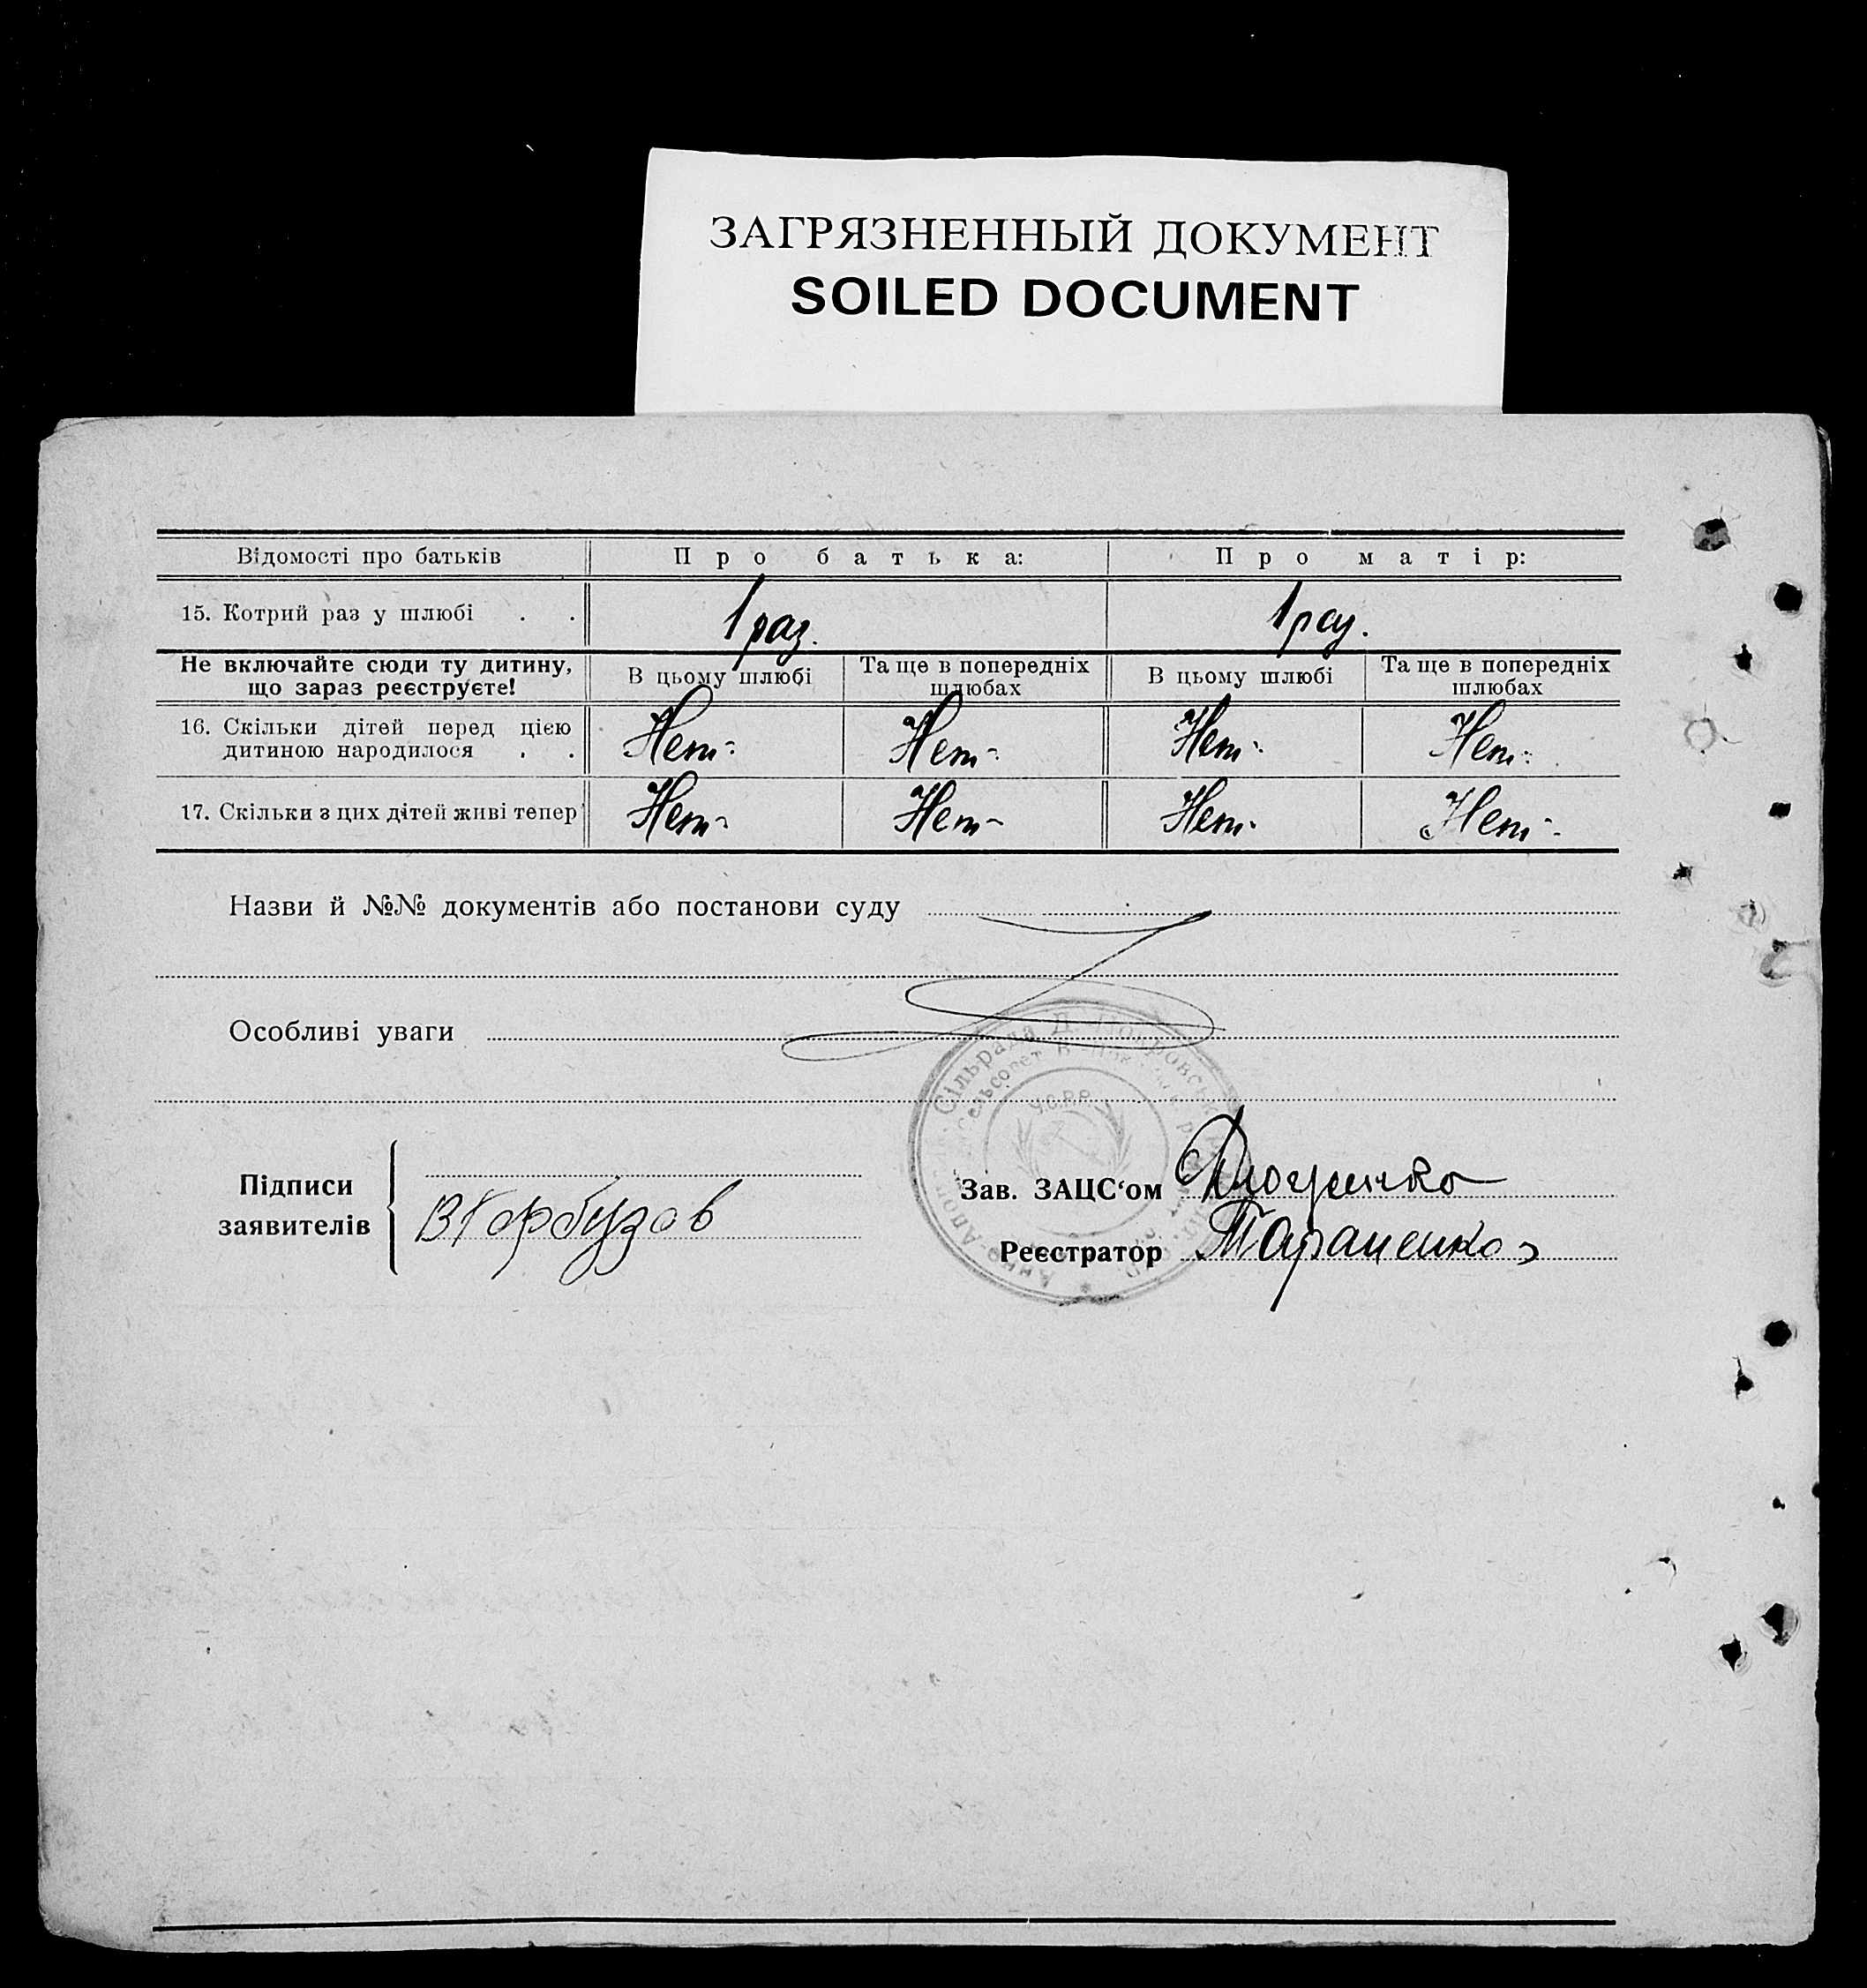 ЗАГРЯЗНЕННЫЙ ДОКУМЕНТ
SOILED DOCUMENT
Відомості про батьків Про батька: Про матір:
15. Котрий раз у шлюбі . . 1 раз. 1 раз.
Не включайте сюди ту дитину, що зараз реєструєте! В цьому шлюбі Та ще в попередніх шлюбах В цьому шлюбі Та ще в попередніх шлюбах
16. Скільки дітей перед цією
дитиною народилося . . Нет Нет Нет Нет
17. Скільки з цих дітей живі тепер Нет Нет Нет Нет
Назви й №№ документів або постанови суду
Особливі уваги
Сільрада Д. Покровськ
У.С.Р.Р.
Підписи
заявителів
Горбузов
Зав. ЗАЦС‘ом
Реєстратор Тараненко